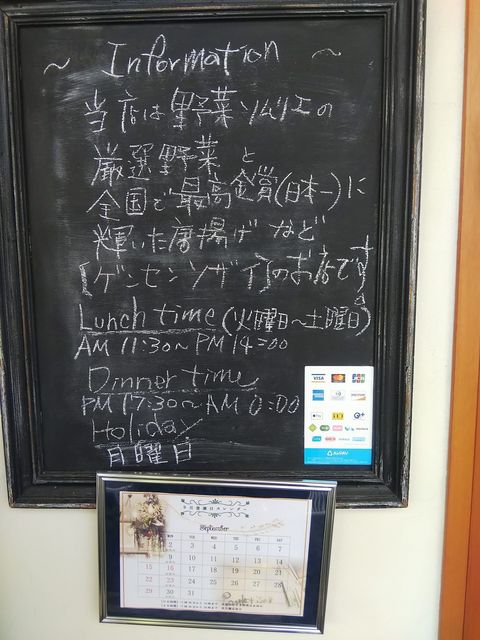 ~ Information ~
当店は野菜ソムリエの
厳選野菜と
全国で最高金賞(日本一)に
輝いた唐揚げなど
[ゲンセンソザイ]のお店です。
Lunch time (火曜日~土曜日)
AM 11:30~PM 14:00
Dinner time
PM 17:30~AM 0:00
Holiday
月曜日
VISA
JCB
AirPAY
9月営業日カレンダー
September
MON TUE WED THU FRI SAT
2 3 4 5 6 7
9 10 11 12 13 14
15 16 17 18 19 20 21
22 23 24 25 26 27 28
29 30 31